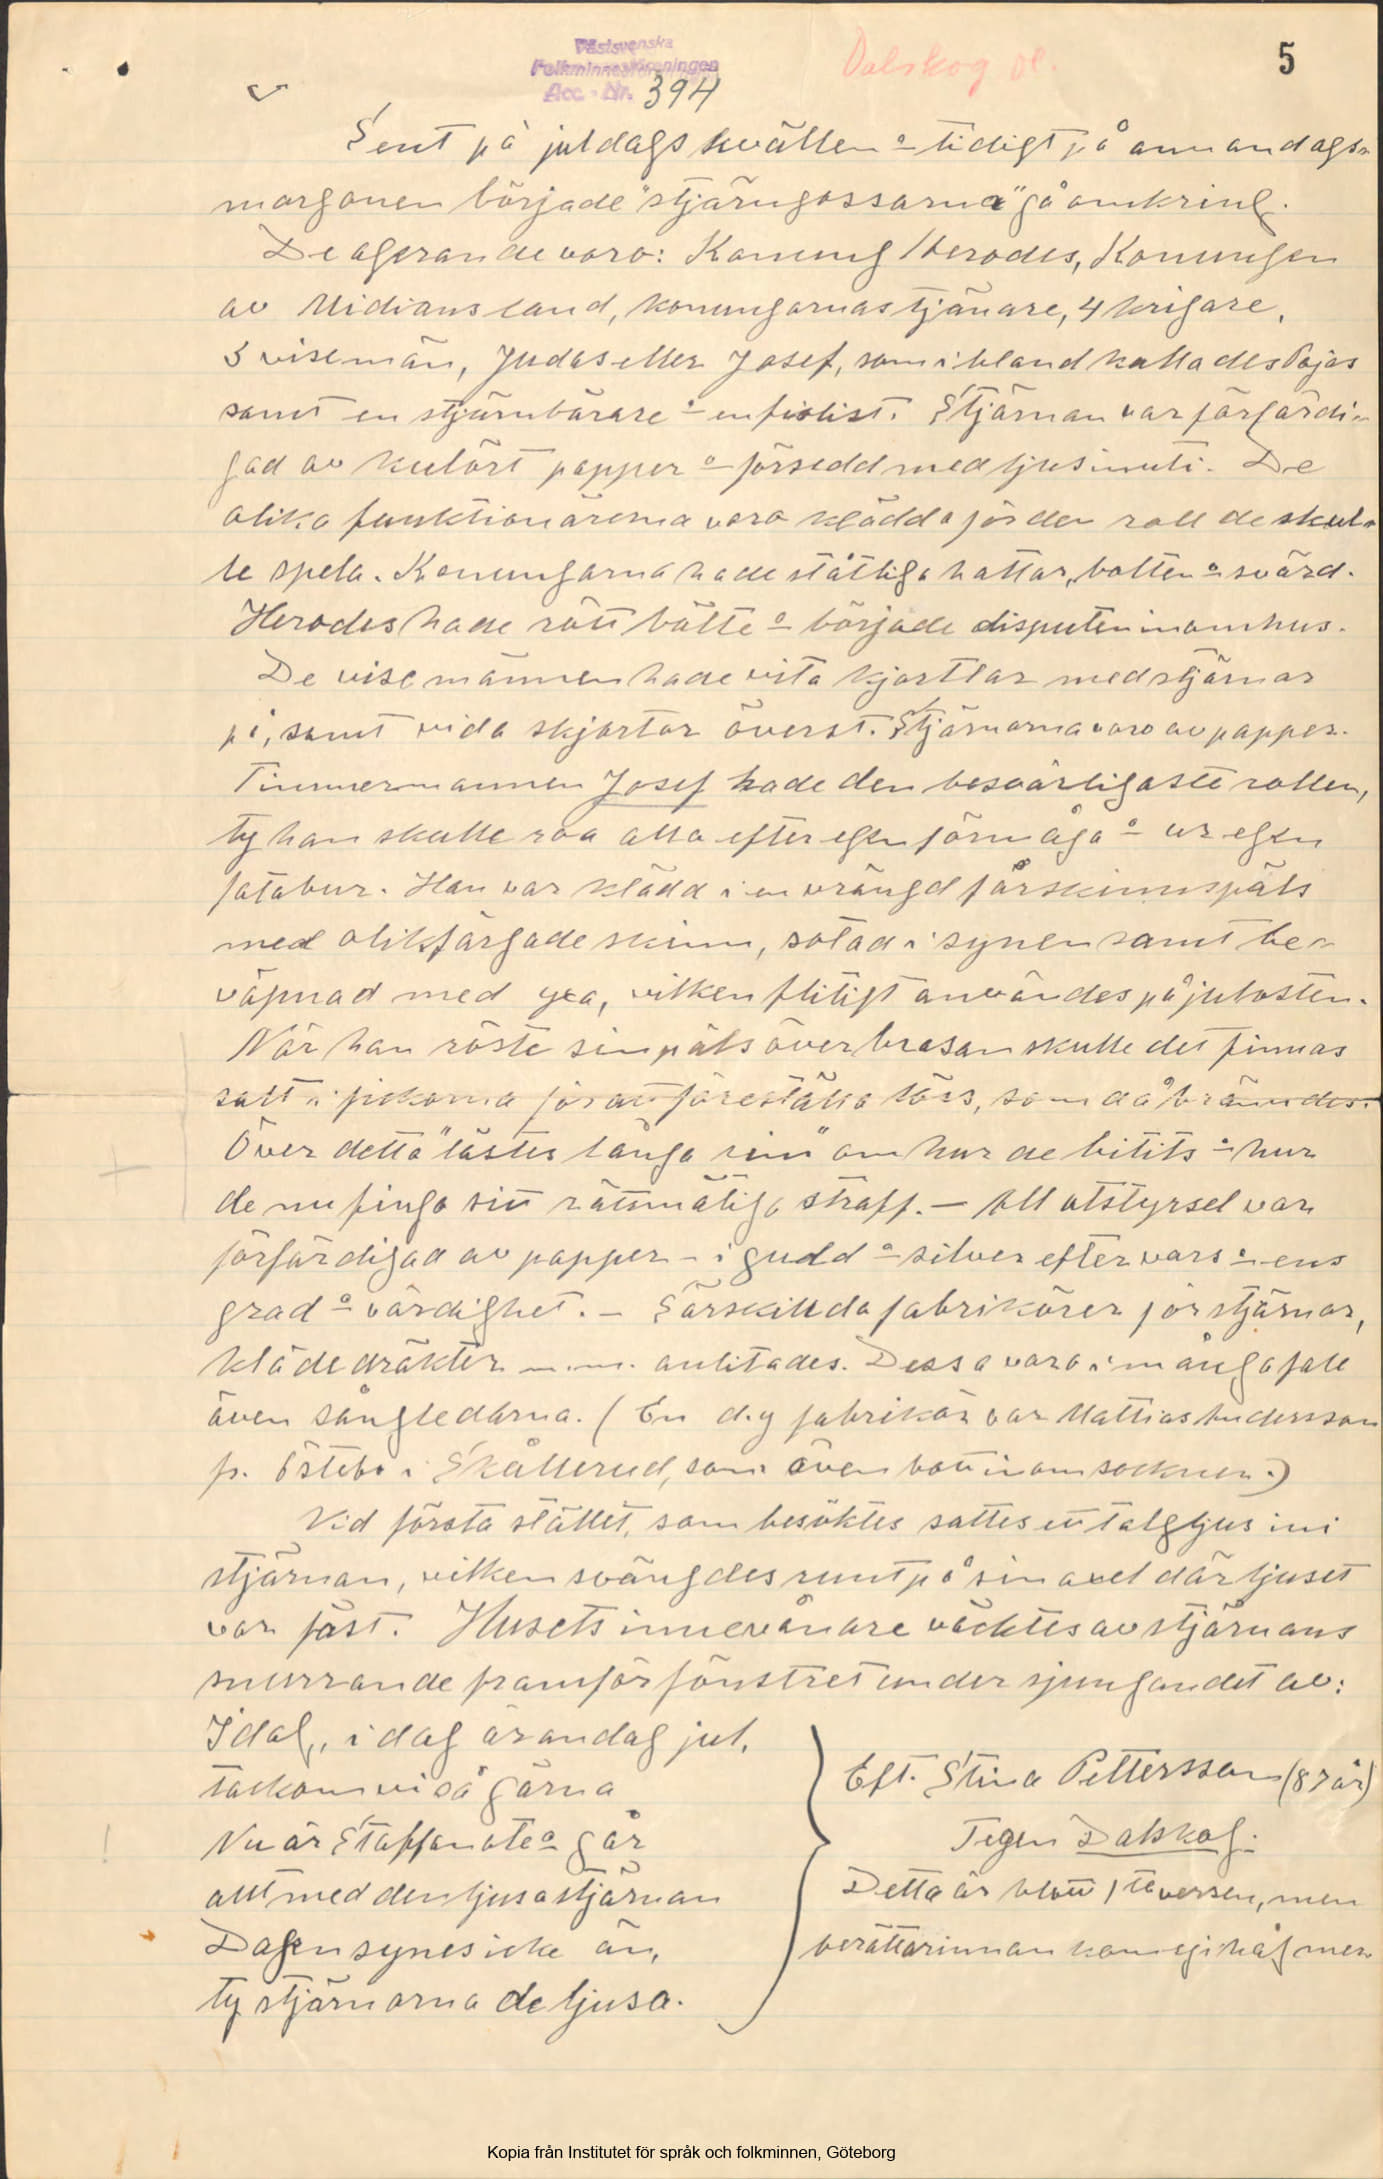 Västsvenska
Folkminnesföreningen
Acc. Nr. 394
Dalskog Dl.
5
Sent på juldagskvällen o tidigt på annandags-
morgonen började "stjärngossarna" gå omkring.
De agerande voro: Konung Herodes, Konungen
av Midians land, konungarnas tjänare, 4 krigare,
3 vise män, Judas eller Josef, som ibland kallades Pajas
samt en stjärnbärare o en fiolist. Stjärnan var förfärdi-
gad av kulört papper o försedd med ljus inuti. De
olika funktionärerna voro klädda för den roll de skul-
le spela. Konungarna hade ståtliga hattar, bälten o svärd.
Herodes hade rött bälte o började disputen inomhus.
De vise männen hade vita kjortlar med stjärnor
på, samt vida skjortor överst. Stjärnorna voro av papper.
Timmermannen Josef hade den besvärligaste rollen,
ty han skulle roa alla efter egen förmåga o ur egen
fatabur. Han var klädd i en vrängd fårskinnspäls
med olikfärgade skinn, sotad i synen samt be-
väpnad med yxa, vilken flitigt användes på julosten.
När han röste sin päls över brasan skulle det finnas
salt i fickorna för att föreställa löss, som då brändes.
Över detta "lästes långa rim" om hur de bitits o hur
de nu fingo sitt rättmätiga straff. – All utstyrsel var
förfärdigad av papper – i guld o silver efter vars o ens
grad o värdighet. – Särskilda fabrikörer för stjärnor,
klädedräkter m.m. anlitades. Dessa voro i många fall
även sångledarna. (En d.y fabrikör var Mattias Andersson
fr. Östebo i Skållerud, som även bott inom socknen.)
Vid första stället, som besöktes sattes ett talgljus ini
stjärnan, vilken svängdes runt på sin axel där ljuset
var fäst. Husets innevånare väcktes av stjärnans
snurrande framför fönstret under sjungandet av:
I dag, i dag är andag jul,
tackom vi så gärna
Nu är Staffan ute o går
allt med den ljusa stjärnan
Dagen synes icke än,
ty stjärnorna de ljusa.
Eft. Stina Pettersson (87 år)
Tegen Dalskog.
Detta är blott 1sta versen, men
berätterinnan kom ej ihåg mer.
Kopia från Institutet för språk och folkminnen, Göteborg